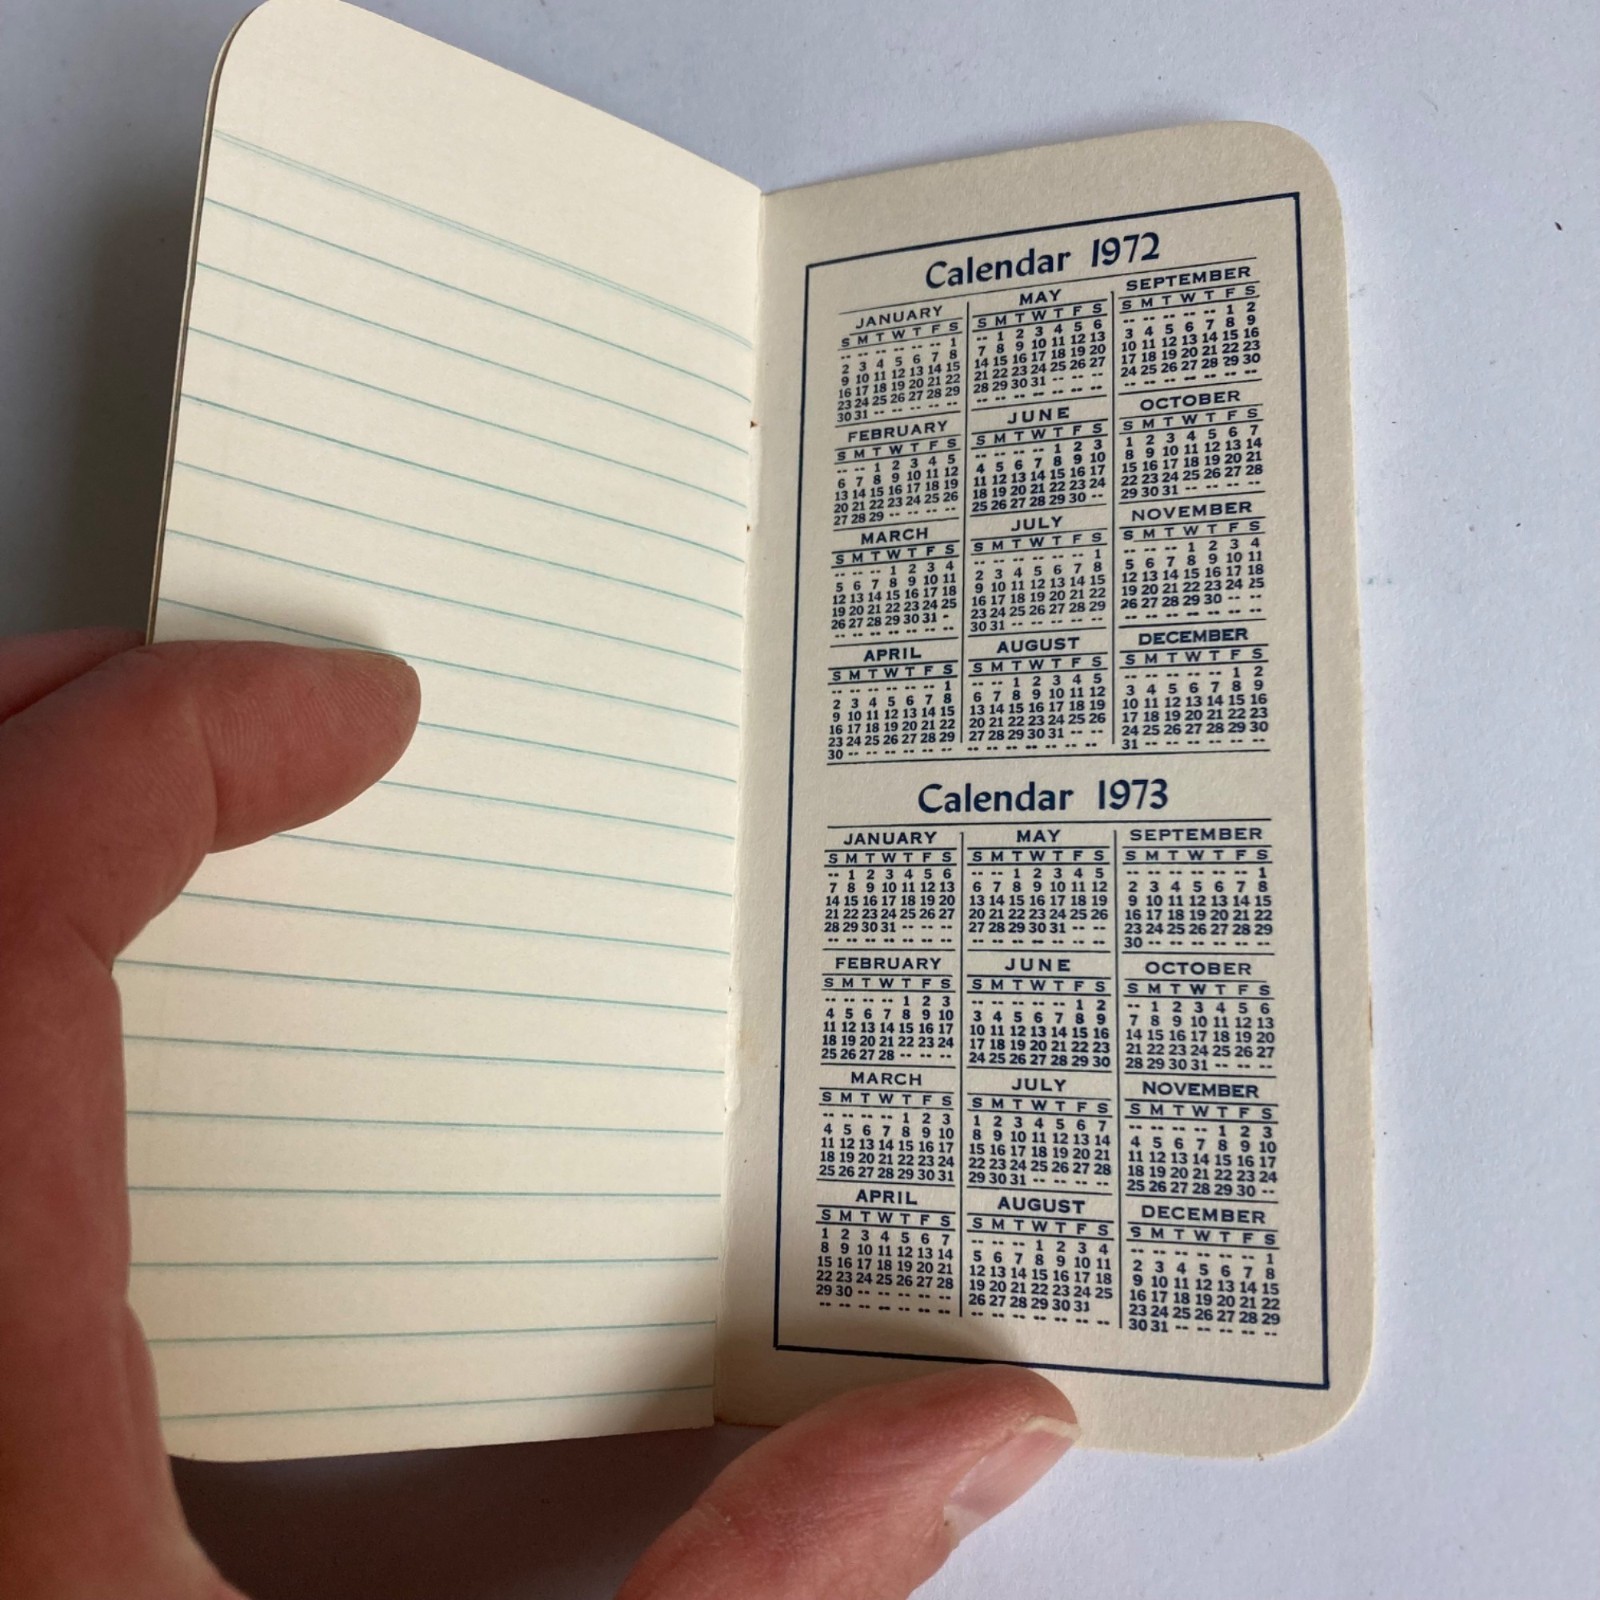 Calendar 1972
JANUARY
S M T W T F S
-- -- -- -- -- -- 1
2 3 4 5 6 7 8
9 10 11 12 13 14 15
16 17 18 19 20 21 22
23 24 25 26 27 28 29
30 31 -- -- -- -- --
FEBRUARY
S M T W T F S
-- -- 1 2 3 4 5
6 7 8 9 10 11 12
13 14 15 16 17 18 19
20 21 22 23 24 25 26
27 28 29 -- -- -- --
MARCH
S M T W T F S
-- -- -- 1 2 3 4
5 6 7 8 9 10 11
12 13 14 15 16 17 18
19 20 21 22 23 24 25
26 27 28 29 30 31 -
-- -- -- -- -- -- --
APRIL
S M T W T F S
-- -- -- -- -- -- 1
2 3 4 5 6 7 8
9 10 11 12 13 14 15
16 17 18 19 20 21 22
23 24 25 26 27 28 29
30 -- -- -- -- -- --
MAY
S M T W T F S
-- 1 2 3 4 5 6
7 8 9 10 11 12 13
14 15 16 17 18 19 20
21 22 23 24 25 26 27
28 29 30 31 -- -- --
-- -- -- -- -- -- --
JUNE
S M T W T F S
-- -- -- -- 1 2 3
4 5 6 7 8 9 10
11 12 13 14 15 16 17
18 19 20 21 22 23 24
25 26 27 28 29 30 --
JULY
S M T W T F S
-- -- -- -- -- -- 1
2 3 4 5 6 7 8
9 10 11 12 13 14 15
16 17 18 19 20 21 22
23 24 25 26 27 28 29
30 31 -- -- -- -- --
AUGUST
S M T W T F S
-- -- 1 2 3 4 5
6 7 8 9 10 11 12
13 14 15 16 17 18 19
20 21 22 23 24 25 26
27 28 29 30 31 -- --
-- -- -- -- -- -- --
SEPTEMBER
S M T W T F S
-- -- -- -- -- 1 2
3 4 5 6 7 8 9
10 11 12 13 14 15 16
17 18 19 20 21 22 23
24 25 26 27 28 29 30
-- -- -- -- -- -- --
OCTOBER
S M T W T F S
1 2 3 4 5 6 7
8 9 10 11 12 13 14
15 16 17 18 19 20 21
22 23 24 25 26 27 28
29 30 31 -- -- -- --
NOVEMBER
S M T W T F S
-- -- -- 1 2 3 4
5 6 7 8 9 10 11
12 13 14 15 16 17 18
19 20 21 22 23 24 25
26 27 28 29 30 -- --
-- -- -- -- -- -- --
DECEMBER
S M T W T F S
-- -- -- -- -- 1 2
3 4 5 6 7 8 9
10 11 12 13 14 15 16
17 18 19 20 21 22 23
24 25 26 27 28 29 30
31 -- -- -- -- -- --
Calendar 1973
JANUARY
S M T W T F S
-- 1 2 3 4 5 6
7 8 9 10 11 12 13
14 15 16 17 18 19 20
21 22 23 24 25 26 27
28 29 30 31 -- -- --
-- -- -- -- -- -- --
FEBRUARY
S M T W T F S
-- -- -- -- 1 2 3
4 5 6 7 8 9 10
11 12 13 14 15 16 17
18 19 20 21 22 23 24
25 26 27 28 -- -- --
MARCH
S M T W T F S
-- -- -- -- 1 2 3
4 5 6 7 8 9 10
11 12 13 14 15 16 17
18 19 20 21 22 23 24
25 26 27 28 29 30 31
APRIL
S M T W T F S
1 2 3 4 5 6 7
8 9 10 11 12 13 14
15 16 17 18 19 20 21
22 23 24 25 26 27 28
29 30 -- -- -- -- --
-- -- -- -- -- -- --
MAY
S M T W T F S
-- -- 1 2 3 4 5
6 7 8 9 10 11 12
13 14 15 16 17 18 19
20 21 22 23 24 25 26
27 28 29 30 31 -- --
-- -- -- -- -- -- --
JUNE
S M T W T F S
-- -- -- -- -- 1 2
3 4 5 6 7 8 9
10 11 12 13 14 15 16
17 18 19 20 21 22 23
24 25 26 27 28 29 30
JULY
S M T W T F S
1 2 3 4 5 6 7
8 9 10 11 12 13 14
15 16 17 18 19 20 21
22 23 24 25 26 27 28
29 30 31 -- -- -- --
AUGUST
S M T W T F S
-- -- -- 1 2 3 4
5 6 7 8 9 10 11
12 13 14 15 16 17 18
19 20 21 22 23 24 25
26 27 28 29 30 31
-- -- -- -- -- -- --
SEPTEMBER
S M T W T F S
-- -- -- -- -- -- 1
2 3 4 5 6 7 8
9 10 11 12 13 14 15
16 17 18 19 20 21 22
23 24 25 26 27 28 29
30 -- -- -- -- -- --
OCTOBER
S M T W T F S
-- 1 2 3 4 5 6
7 8 9 10 11 12 13
14 15 16 17 18 19 20
21 22 23 24 25 26 27
28 29 30 31 -- -- --
NOVEMBER
S M T W T F S
-- -- -- -- 1 2 3
4 5 6 7 8 9 10
11 12 13 14 15 16 17
18 19 20 21 22 23 24
25 26 27 28 29 30 --
DECEMBER
S M T W T F S
-- -- -- -- -- -- 1
2 3 4 5 6 7 8
9 10 11 12 13 14 15
16 17 18 19 20 21 22
23 24 25 26 27 28 29
30 31 -- -- -- -- --